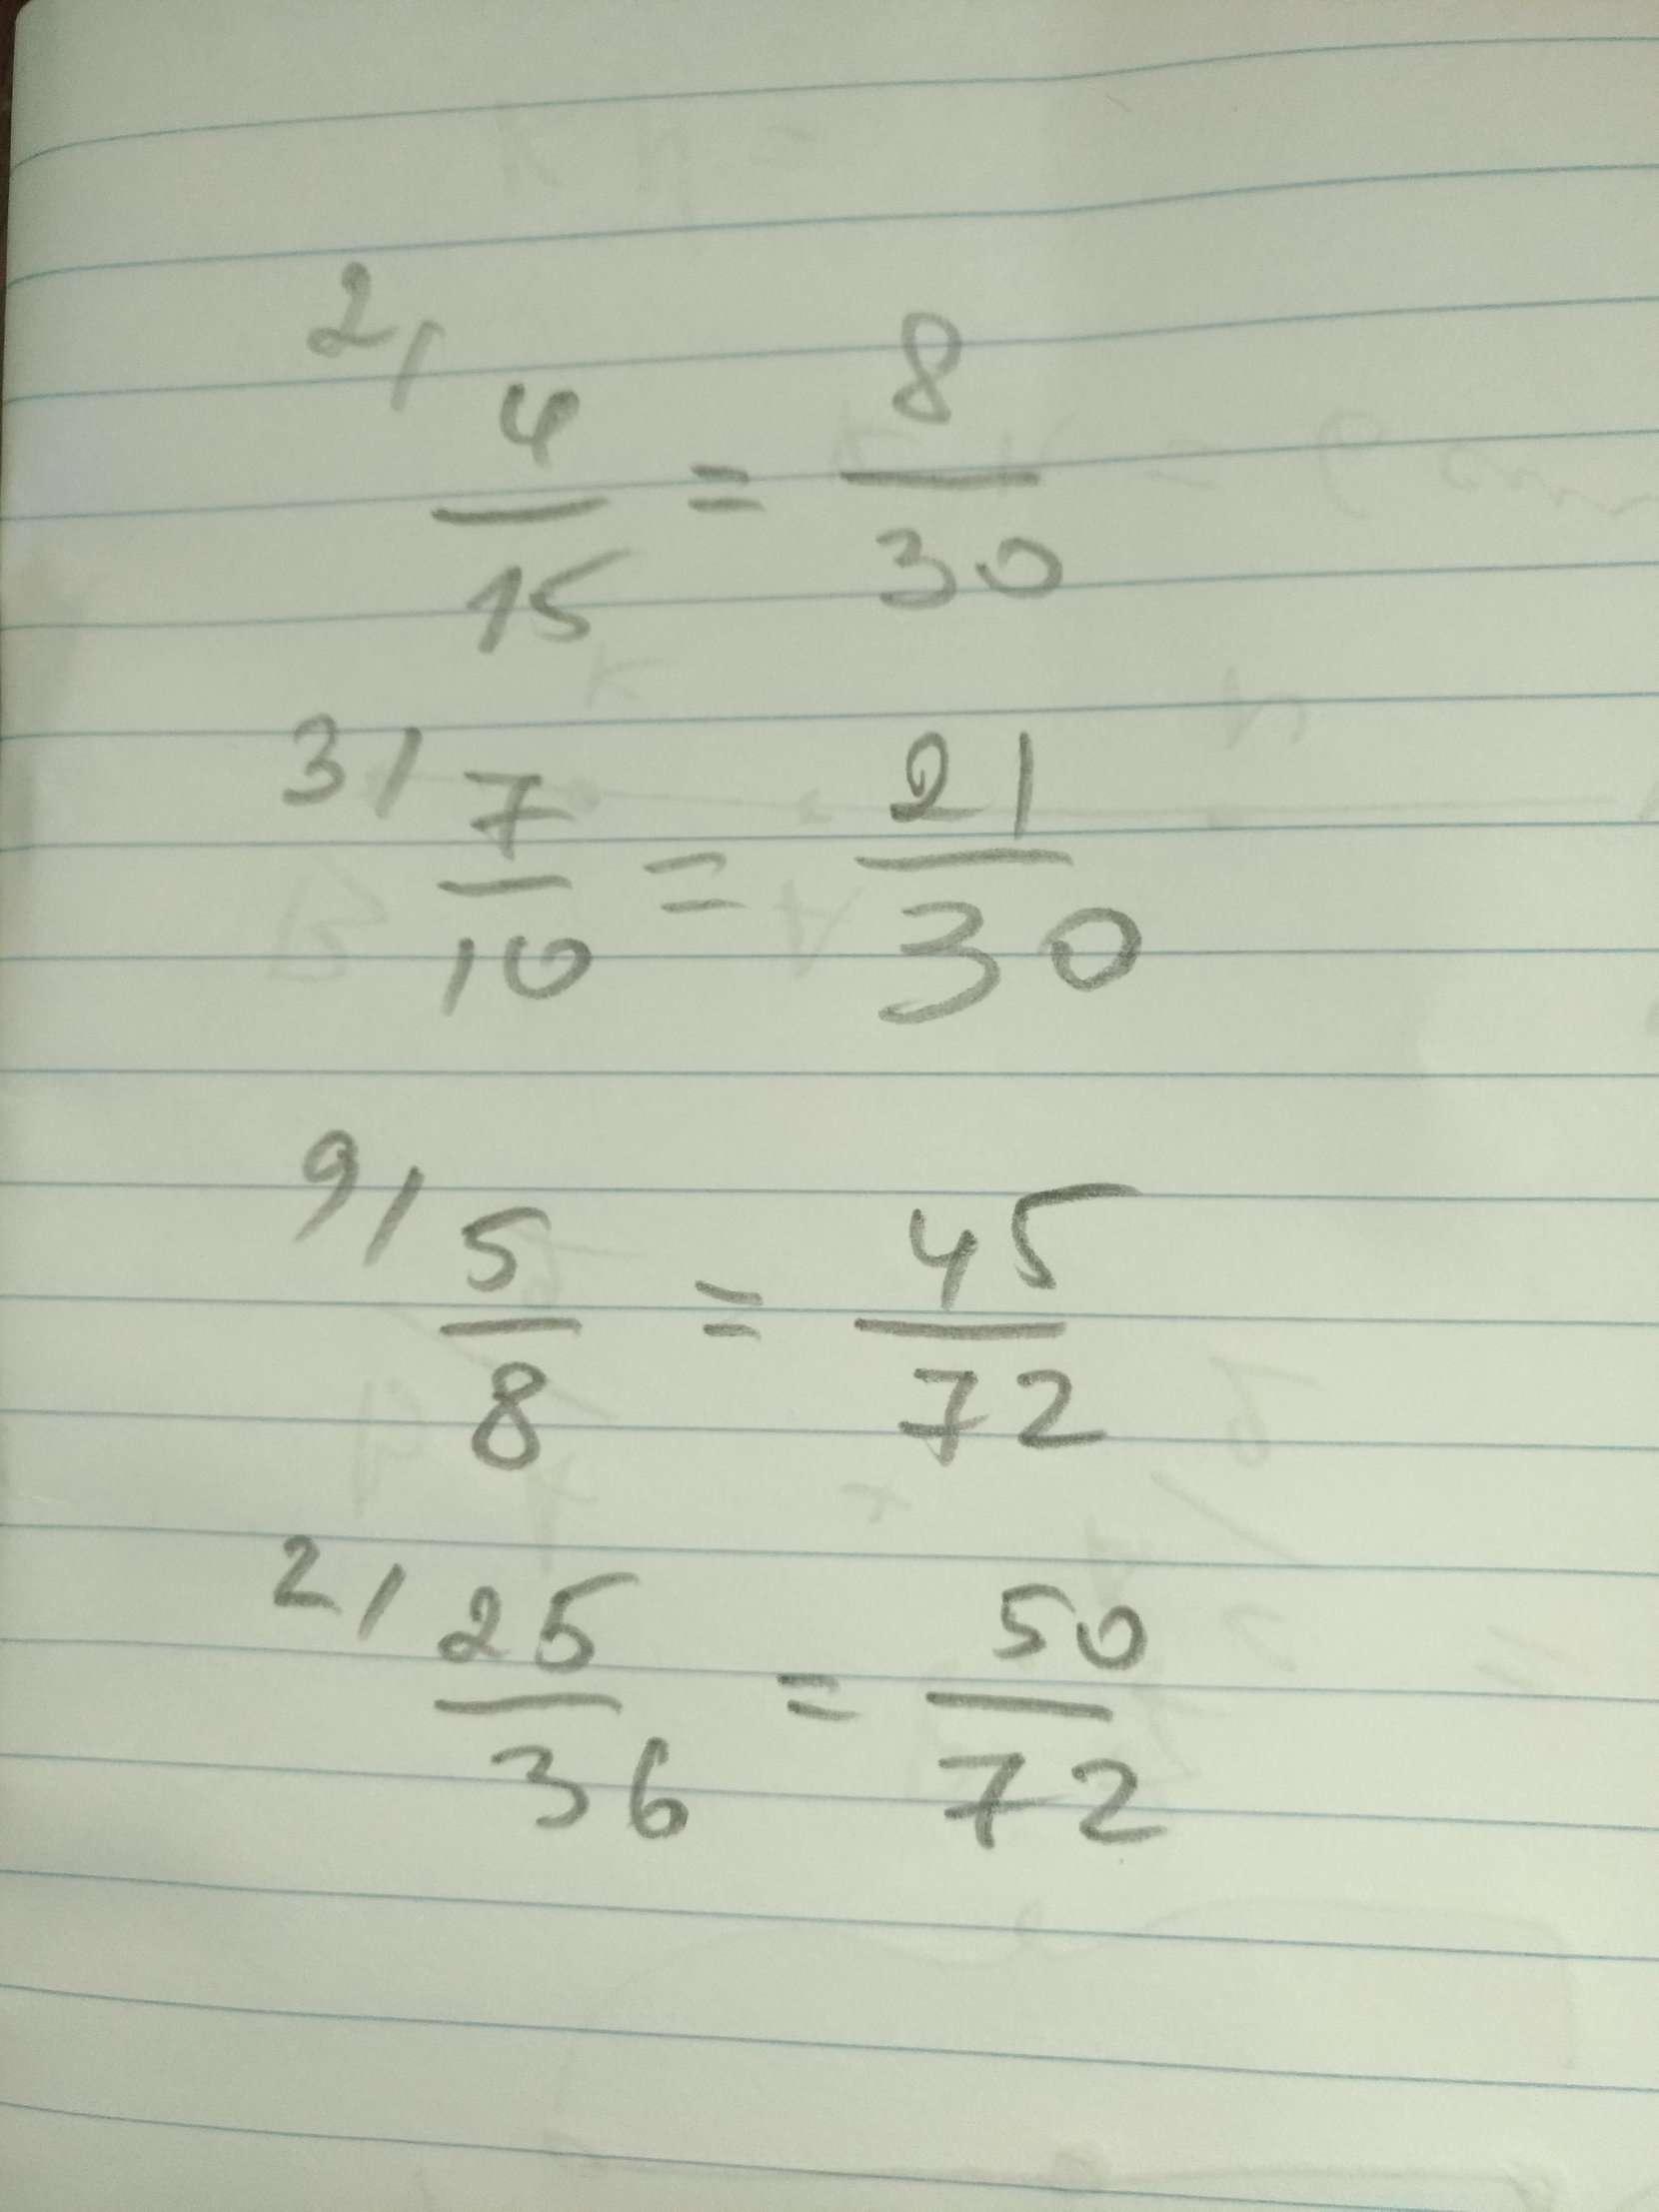 2/ 4/15 = 8/30
3/ 7/10 = 21/30
9/ 5/8 = 45/72
2/ 25/36 = 50/72